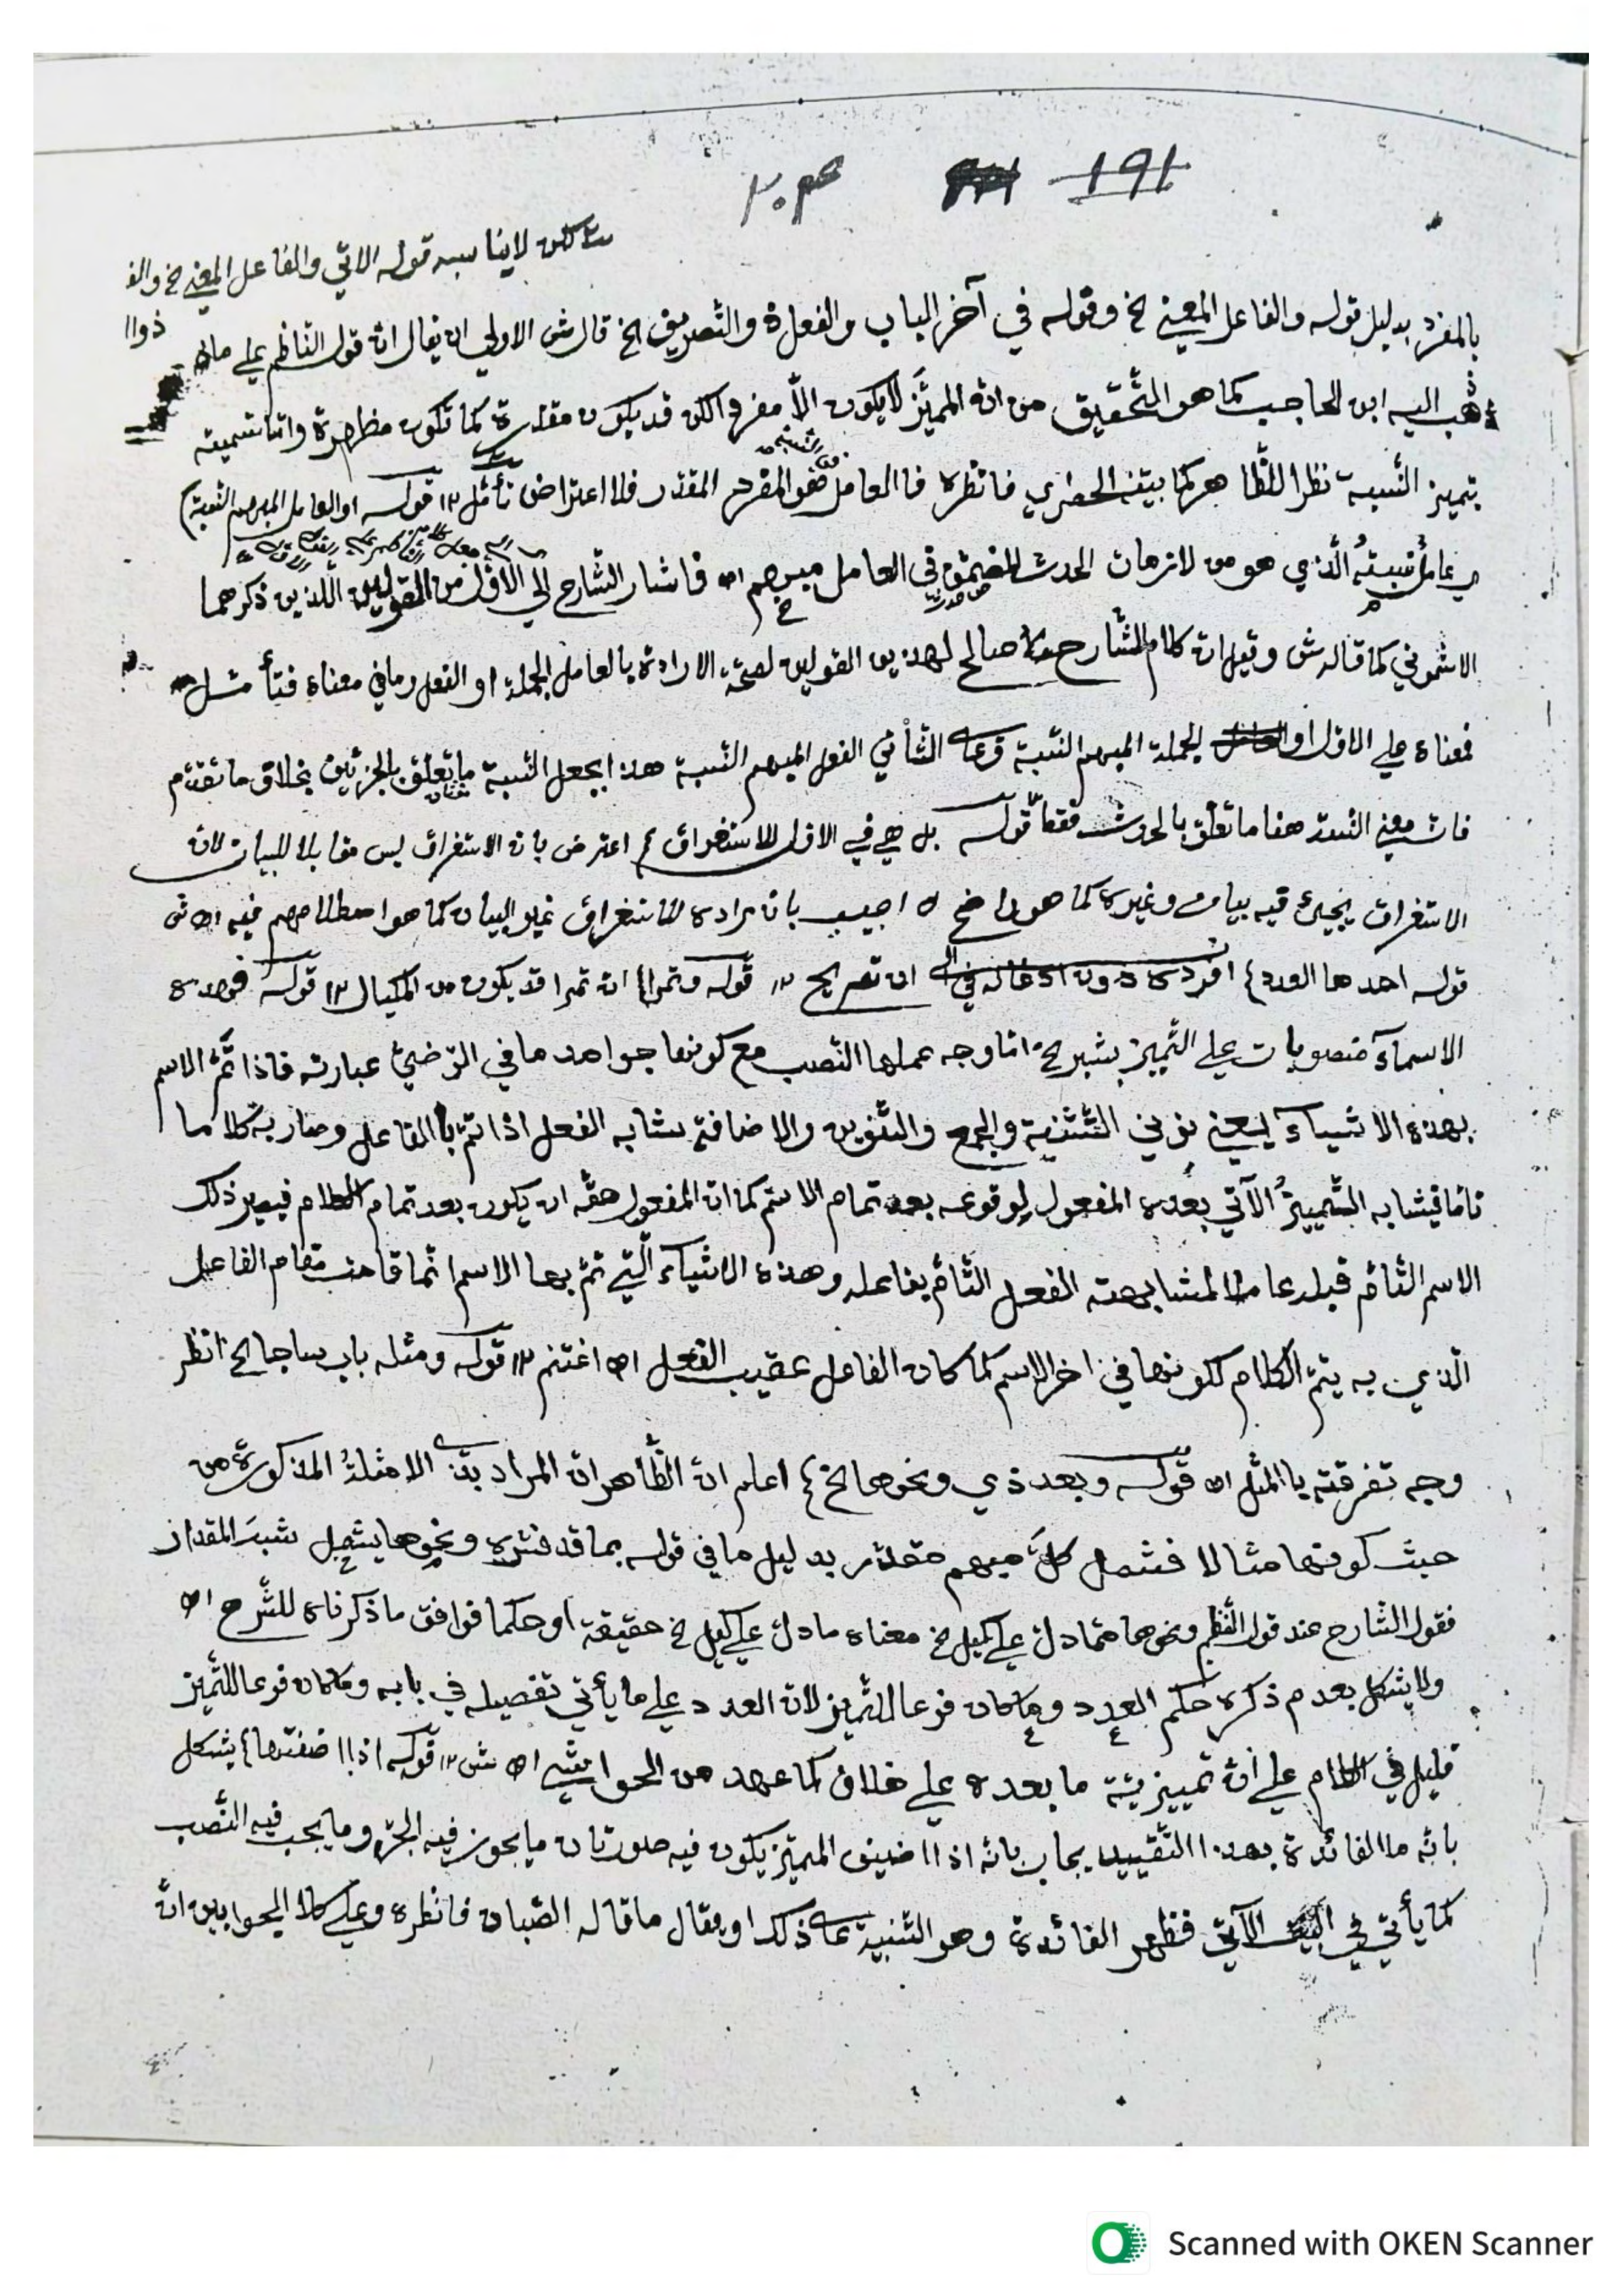 ١٩١ ٢٠٣
لكن لا يناسبه قوله الاتي والفاعل المعنى الخ
ذوا
بالمفرد بدليل قوله والفاعل المعنى الخ وقوله في آخر الباب والفعل ذو التصريف الخ قال ش الاولى ان يقال ان قول الناظم على ما
ذهب اليه ابن الحاجب كما هو التحقيق من ان المميَّز لا يكون الاّ مفردا لكن قد يكون مقدرة كما تكون مظهرة وانما تسميته
بتميز النّسبة نظرا للظاهر كما بيّنه الخضري فانظره فالعامل هو المفرد المقدر فلا اعتراض تأمّل ١٢ قوله او العامل المبهم النسبة)
اي عامل نسبتُه الّذي هو من لازمات الحدث في العامل مبهم اه فاشار الشارح الى الاوّل من القولين اللّذين ذكرهما
الاشموني كما قاله ش وقيل ان كلام الشارح صالح لهذين القولين لصحّة الارادة بالعامل الجملة او الفعل وما في معناه فتأمّل
فمعناه على الاول او الجملة المبهم النّسبة وعلى الثّاني الفعل المبهم النّسبة هذا بجعل النّسبة ما تعلّق بالجزئين بخلاف ما تقدّم
فان معنى النسبة هنا ما تعلّق بالحدث فقط قوله بل هي في الاول للاستغراق} اعترض بان الاستغراق ليس مقابلا للبيان لان
الاستغراق يجيئ فيه بيان وغيره كما هو واضح اجيب بان مراده الاستغراق غير البيان كما هو اصطلاحهم فيه اه ش
قوله احدها العدد} افرده دون ادخاله في ان تصريح ١٢ قوله وتمرا} ان تمرا قد يكون من المكيال ١٢ قوله فهذه
الاسمآء منصوبات على التّمييز بشبر الخ امّا وجه عملها النّصب مع كونها جوامد ما في الرّضيّ عبارته فاذا تَمَّ الاسم
بهذه الاشياء يعني نوني التّثنية والجمع والتّنوين والاضافة شابه الفعل اذا تمّ بالفاعل وصار به كلاما
تامّا فيشابه التّمييزُ الآتي بعده المفعول لوقوعه بعد تمام الاسم كما ان المفعول حقّه ان يكون بعد تمام الكلام فيصير ذلك
الاسم التّامّ قبله عاملا لمشابهته الفعل التّامّ بفاعله وهذه الاشياء الّتي تمّ بها الاسم انما قامت مقام الفاعل
الّذي به يتمّ الكلام لكونها في اخر الاسم كما كان الفاعل عقيب الفعل اه اغتنم ١٢ قوله ومثله باب ساجا الخ انظر
وجه تفرقته بالمثل اه قوله وبعد ذي ونحوها الخ} اعلم انّ الظّاهر ان المراد بذي الامثلةُ المذكورة من
حيث كونها مثالا فشمل كلَّ مبهم مقدّر بدليل ما في قوله بما قد فسّره ونحوها يشمل شبهَ المقدار
فقول الشارح عند قول النّظم ونحوها ممّا دلّ على كيل الخ معناه ما دلّ على كيل الخ حقيقة او حكما فوافق ما ذكرناه للشّرح اه
ولا يشكل بعدم ذكره حكم العدد وما كان فرعا للتّميز لان العدد على ما يأتي تفصيله في بابه وما كان فرعا للتّميز
قليل في الكلام على انّ تمييزيّة ما بعده على خلاف كما عهد من الحواشي اه ش ١٢ قوله اذا اضفتها} يشكل
بانّه ما الفائدة بهذا التّقييد يجاب بانّه اذا اضيف المميّز يكون فيه صورتان ما يجوز فيه الجرّ وما يجب فيه النّصب
كما يأتي في البيت الآتي فظهر الفائدة وهو التّنبيه على ذلك او يقال ما قاله الصّبان فانظره وعلى كلا الجوابين انّ
Scanned with OKEN Scanner